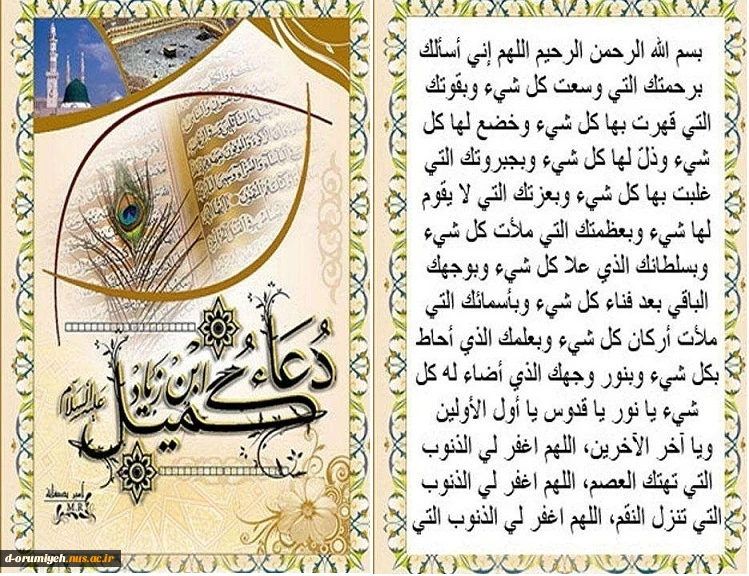 دُعَاء كُمَيل
ابْن زِيَاد
عليه السلام
M.R
d-orumiyeh.nus.ac.ir
بسم الله الرحمن الرحيم اللهم إني أسألك
برحمتك التي وسعت كل شيء وبقوتك
التي قهرت بها كل شيء وخضع لها كل
شيء وذلّ لها كل شيء وبجبروتك التي
غلبت بها كل شيء وبعزتك التي لا يقوم
لها شيء وبعظمتك التي ملأت كل شيء
وبسلطانك الذي علا كل شيء وبوجهك
الباقي بعد فناء كل شيء وبأسمائك التي
ملأت أركان كل شيء وبعلمك الذي أحاط
بكل شيء وبنور وجهك الذي أضاء له كل
شيء يا نور يا قدوس يا أول الأولين
ويا آخر الآخرين، اللهم اغفر لي الذنوب
التي تهتك العصم، اللهم اغفر لي الذنوب
التي تنزل النقم، اللهم اغفر لي الذنوب التي